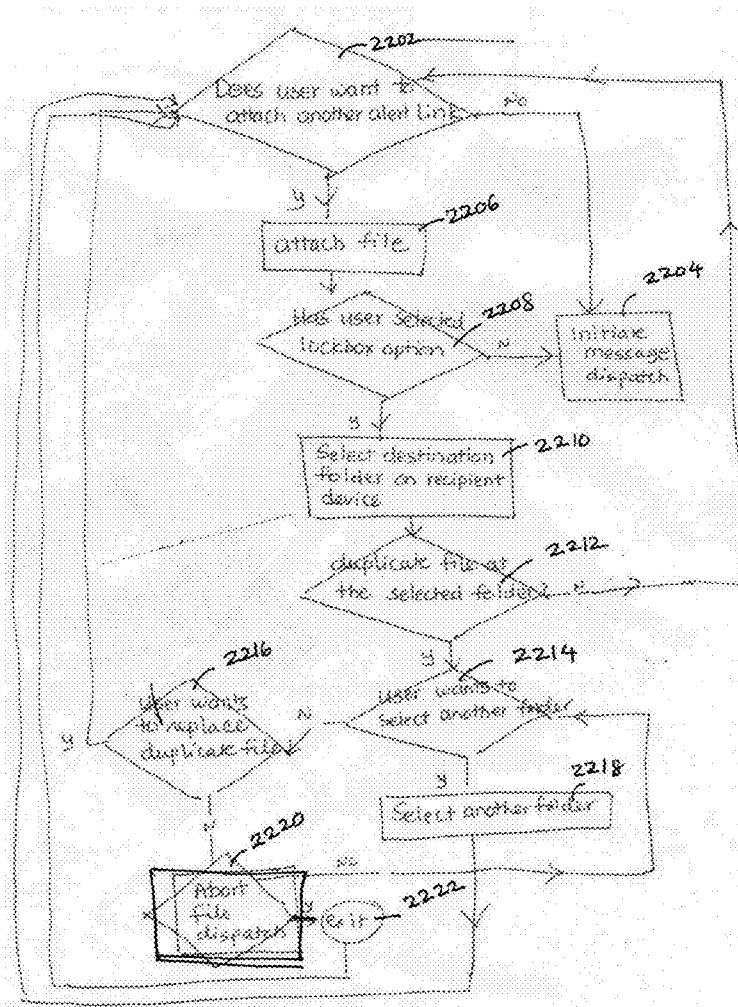 2202
Does user want to
attach another alert link
No
y
2206
attach file
2208
Has user selected
lockbox option
N
2204
Initiate
message
dispatch
y
2210
Select destination
folder on recipient
device
2212
duplicate file at
the selected folder?
N
y
2214
User wants to
select another folder
N
2216
User wants
to replace
duplicate file
y
y
2218
Select another folder
N
2220
No
Abort
file
dispatch
y
exit
2222